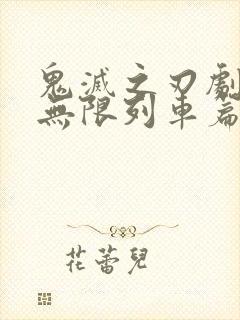 鬼滅之刃劇
無限列車篇
花蕾兒